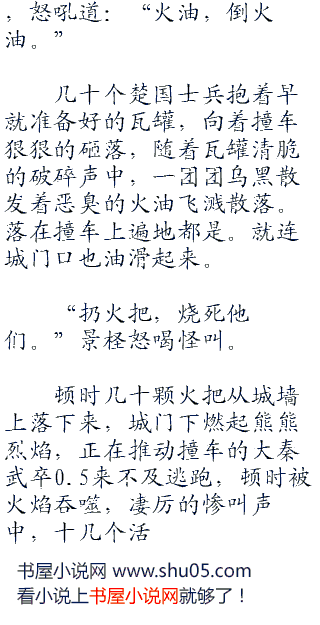 ，怒吼道：“火油，倒火
油。”
几十个楚国士兵抱着早
就准备好的瓦罐，向着撞车
狠狠的砸落，随着瓦罐清脆
的破碎声中，一团团乌黑散
发着恶臭的火油飞溅散落。
落在撞车上遍地都是。就连
城门口也油滑起来。
“扔火把，烧死他
们。”景柽怒喝怪叫。
顿时几十颗火把从城墙
上落下来，城门下燃起熊熊
烈焰，正在推动撞车的大秦
武卒0.5来不及逃跑，顿时被
火焰吞噬，凄厉的惨叫声
中，十几个活
书屋小说网 www.shu05.com
看小说上书屋小说网就够了！